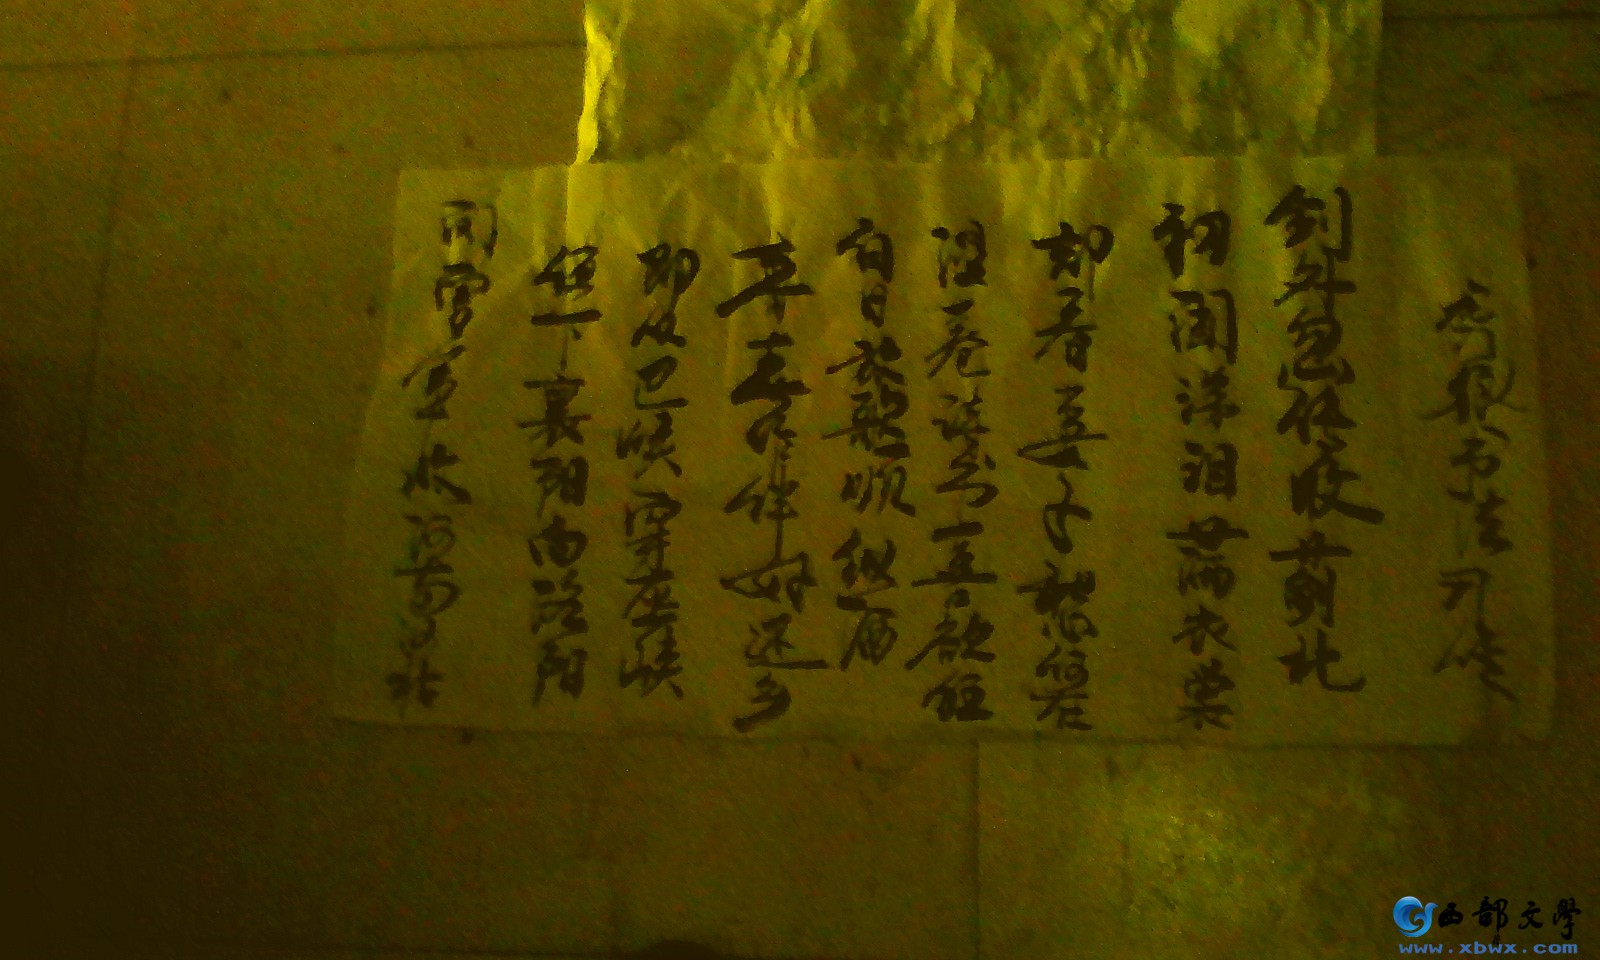 剑外忽传收蓟北
初闻涕泪满衣裳
却看妻子愁何在
漫卷诗书喜欲狂
白日放歌须纵酒
青春作伴好还乡
即从巴峡穿巫峡
便下襄阳向洛阳
闻官军收河南河北
西部文學
www.xbwx.com